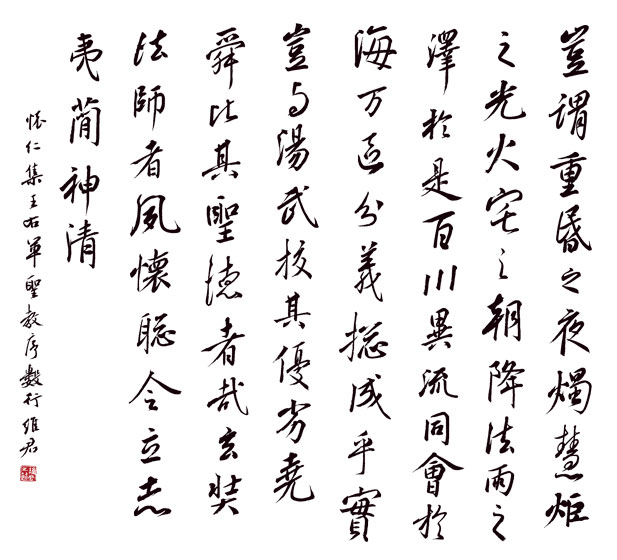 豈謂重昬之夜燭慧炬
之光火宅之朝降法雨之
澤於是百川異流同會於
海万區分義揔成乎實
豈与湯武校其優劣堯
舜比其聖德者哉玄奘
法師者夙懷聡令立志
夷簡神清
懷仁集王右軍聖教序數行維君